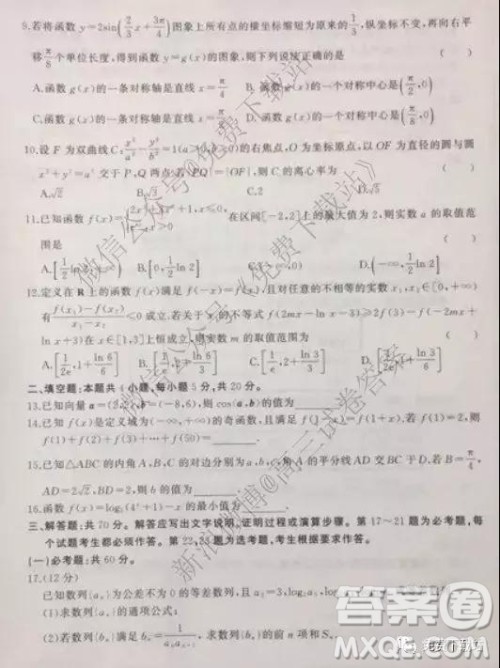 9.若将函数 y=2sin(2/3 x+3π/4)图象上所有点的横坐标缩短为原来的1/3,纵坐标不变,再向右平
移π/8个单位长度,得到函数 g(x)的图象,则下列说法正确的是 ( )
A.函数 g(x)的一条对称轴是直线 x=π/4 B.函数 g(x)的一个对称中心是(π/2,0)
C.函数 g(x)的一条对称轴是直线 x=π/2 D.函数 g(x)的一个对称中心是(π/8,0)
10.设 F 为双曲线 C:x²/a²-y²/b²=1(a>0,b>0)的右焦点,O 为坐标原点,以 OF 为直径的圆与圆
x²+y²=a² 交于 P,Q 两点.若|PQ|=|OF|,则 C 的离心率为 ( )
A.√2 B.√3 C.2 D.√5
11.已知函数 f(x)= 2x³+3x²+1,x≤0, 在区间[-2,2]上的最大值为 2,则实数 a 的取值范
围是 ( )
A.[1/2 ln 2] B.[0,1/2 ln 2] C.(-∞,0] D.(-∞,1/2 ln 2]
12.定义在 R 上的函数 f(x)满足 f(-x)=f(x),且对任意的不相等的实数 x₁,
有 f(x₁)-f(x₂)/x₁-x₂<0 成立,若关于 x 的不等式 f(2mx-ln x-3)≥2f(3)-f(-2mx+
ln x+3)在 x∈[1,3]上恒成立,则实数 m 的取值范围为 ( )
A.[1/2e,1+ln 6/6] B.[1/e,1+ln 6/6] C.[1/e,2+ln 3/3] D.[1/2e,1+ln 3/6]
二、填空题:本题共 4 小题,每小题 5 分,共 20 分。
13.已知向量 a=(2,2),b=(-8,6),则 cos⟨a,b⟩=
14.已知 f(x)是定义域为(-∞,+∞)的奇函数,且满足 若 f(1)=2,则
f(1)+f(2)+f(3)+…+f(50)=
15.已知△ABC 的内角 A,B,C 的对边分别为 a,b,c,角 A 的平分线 AD 交 BC 于 D.若 B=π/4,
AD=2√2,BD=2,则 b 的值为
16.函数 f(x)=log₂(4ˣ+1)-x 的最小值为
三、解答题:共 70 分。解答应写出文字说明、证明过程或演算步骤。第 17~21 题为必考题,每
个试题考生都必须作答。第 22,23题为选考题,考生根据要求作答。
(一)必考题:共 60 分。
17.(12 分)
已知数列{aₙ}为公差不为 0 的等差数列,且 a₂=3,log₂a₁,log₂
(1)求数列{aₙ}的通项公式;
(2)若数列{bₙ}满足 bₙ= 求数列{bₙ}的前 n 项和 Sₙ.
微信公众号《免费下载站》
微信公众号《免费下载站》
新浪微博@高三试卷答案
答案圈
MXQE.COM